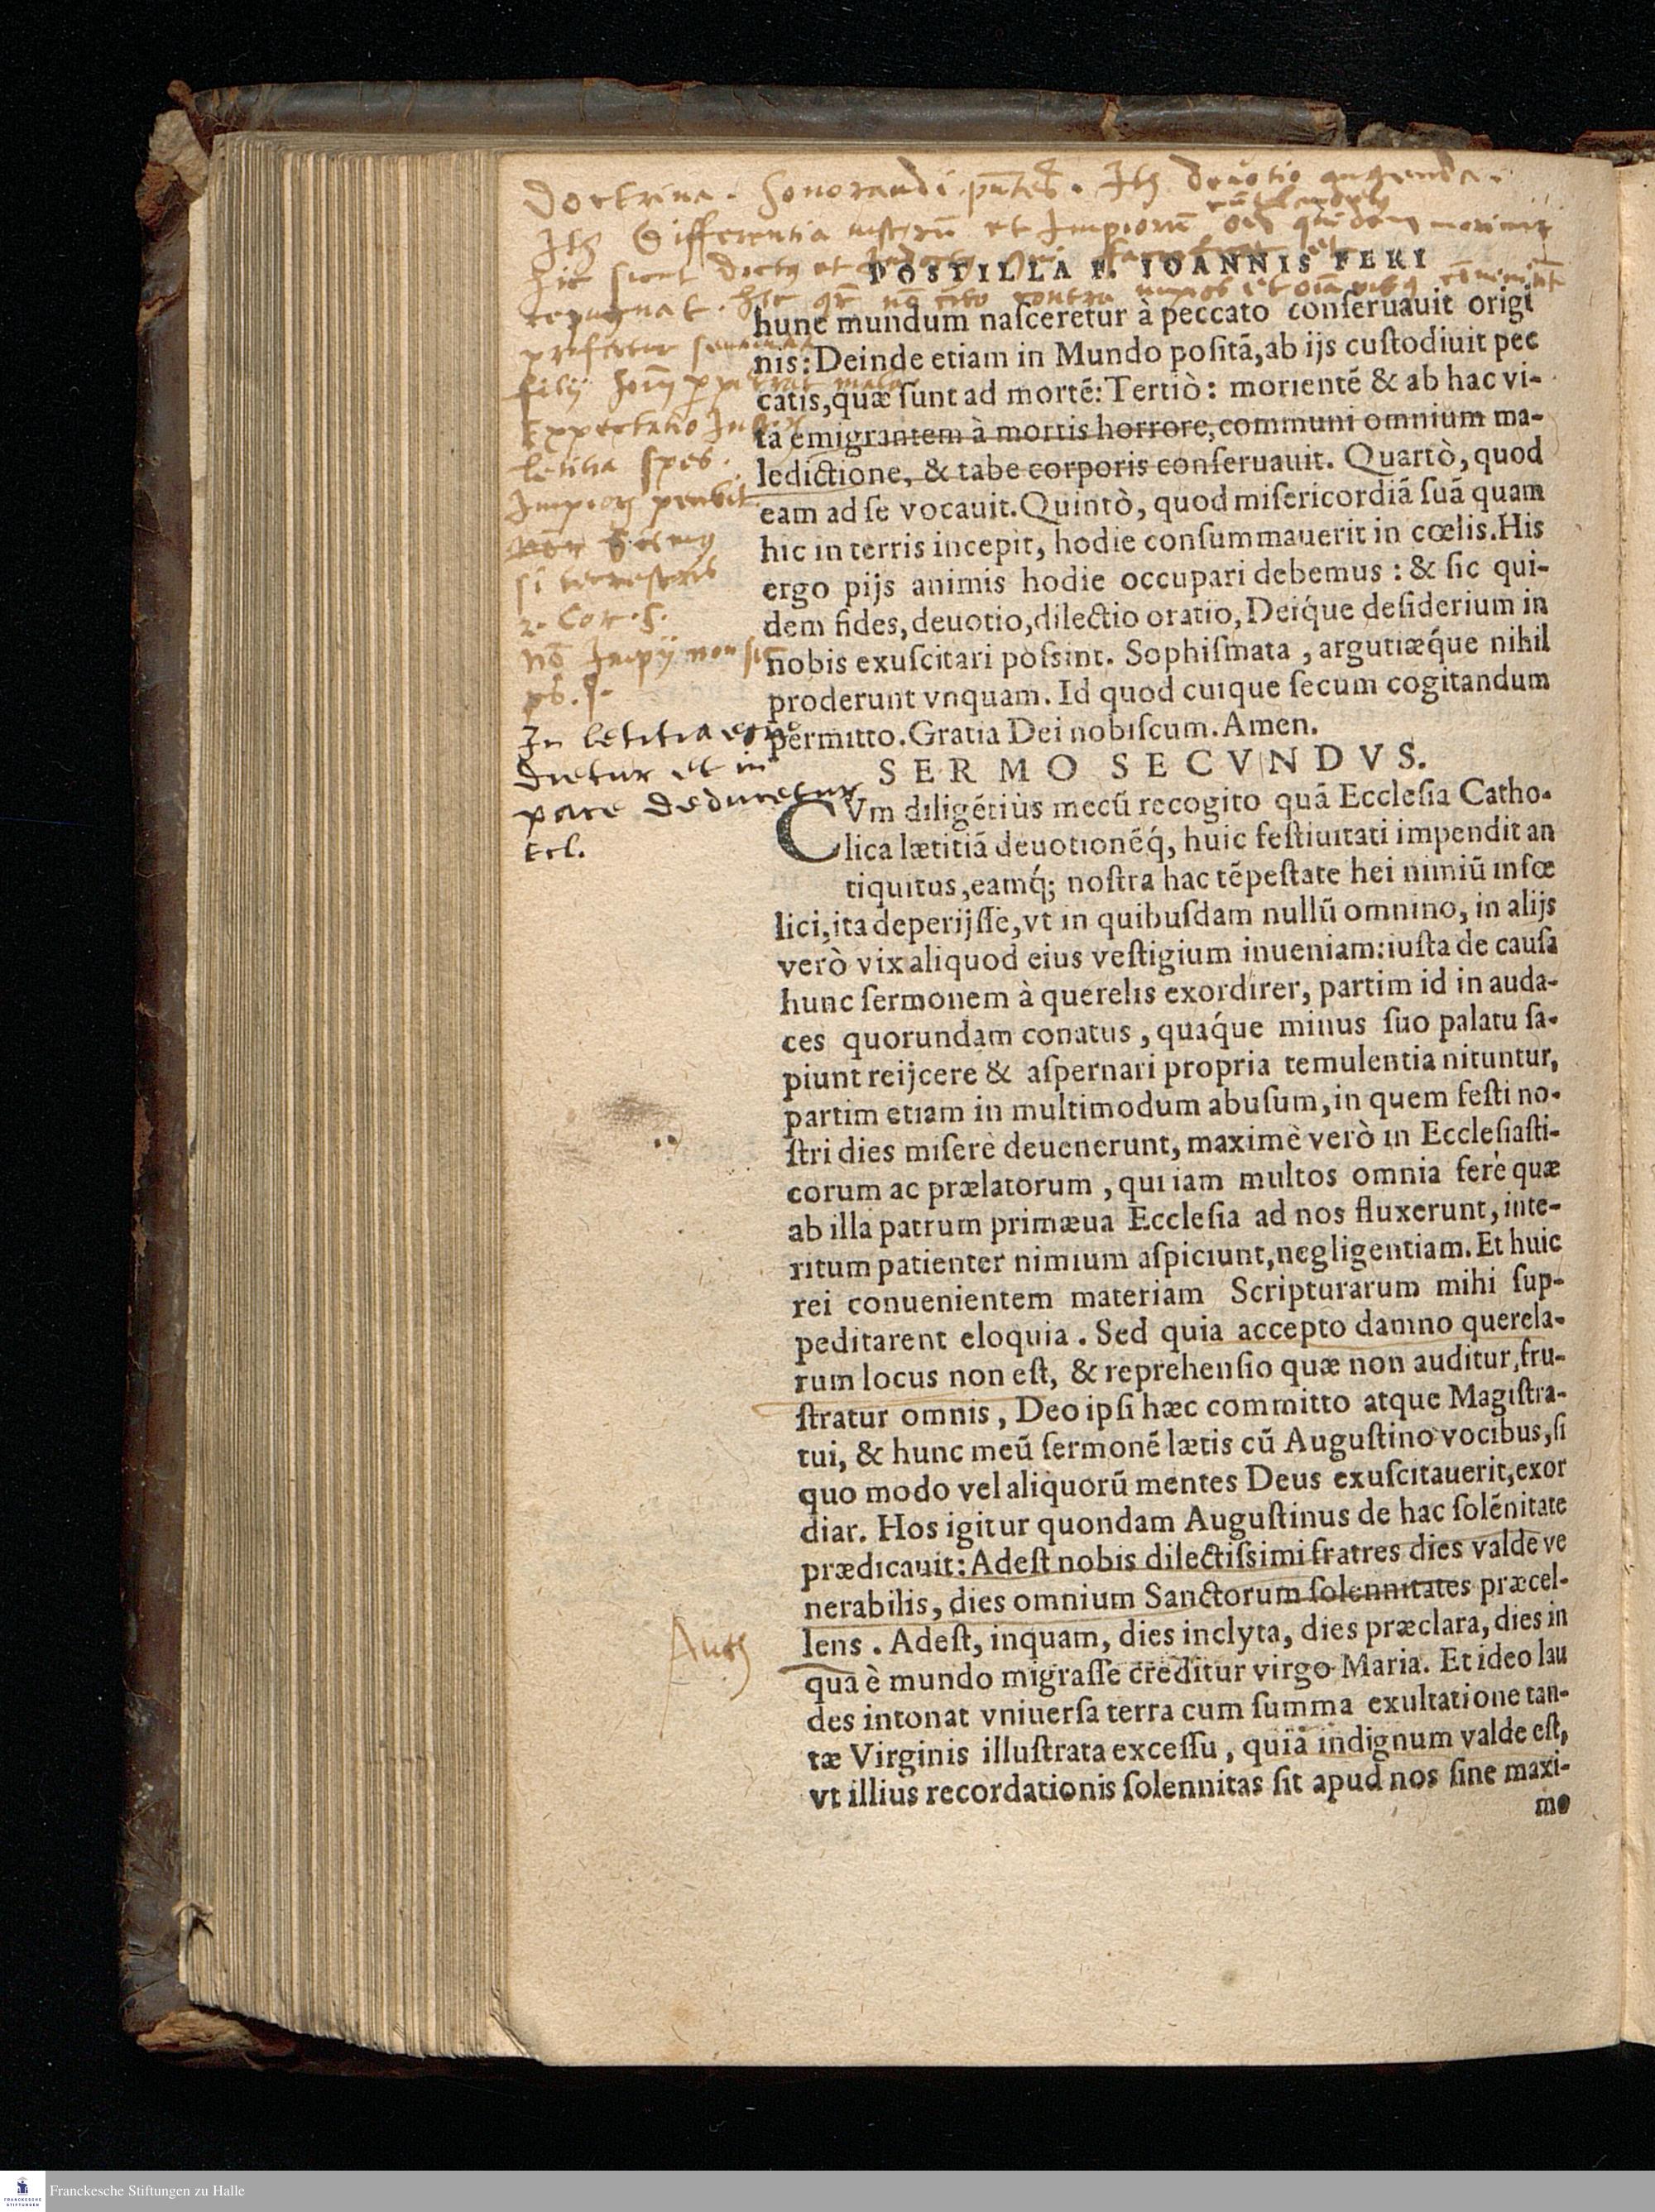 Doctrina. Honorandi. Itē devotio augenda.
Itē Differentia iustorū et Impiorū
hic sicut doctus et
repugnat. hic nō contra
POSTILLA F. IOANNIS FERI
hunc mundum naſceretur à peccato conſeruauit origi
nis: Deinde etiam in Mundo poſitã, ab ijs cuſtodiuit pec
catis, quæ ſunt ad mortẽ: Tertiò: morientẽ & ab hac vi-
ta emigrantem à mortis horrore, communi omnium ma-
ledictione, & tabe corporis conſeruauit. Quartò, quod
eam ad ſe vocauit. Quintò, quod miſericordiã ſuã quam
hic in terris incepit, hodie conſummauerit in cœlis. His
ergo pijs animis hodie occupari debemus: & ſic qui-
dem fides, deuotio, dilectio oratio, Deiq́ue deſiderium in
nobis exuſcitari poſsint. Sophiſmata, argutiæq́ue nihil
proderunt vnquam. Id quod cuique ſecum cogitandum
permitto. Gratia Dei nobiſcum. Amen.
filij
Expectatio
letitia spes.
Impiorū peribit
si terrestris
2. Cor. 5.
nō Impij non sic
ps. 1.
In letitia egre
dietur et in
pace deducetur
SERMO SECVNDVS.
CVm diligẽtiùs mecũ recogito quã Eccleſia Catho-
lica lætitiã deuotionẽq́, huic feſtiuitati impendit an
tiquitus, eamq́; noſtra hac tẽpeſtate hei nimiũ infœ
lici, ita deperijſſe, vt in quibuſdam nullũ omnino, in alijs
verò vix aliquod eius veſtigium inueniam: iuſta de cauſa
hunc ſermonem à querelis exordirer, partim id in auda-
ces quorundam conatus, quaq́ue minus ſuo palatu ſa-
piunt reijcere & aſpernari propria temulentia nituntur,
partim etiam in multimodum abuſum, in quem feſti no-
ſtri dies miſerè deuenerunt, maximè verò in Eccleſiaſti-
corum ac prælatorum, qui iam multos omnia ferè quæ
ab illa patrum primæua Eccleſia ad nos fluxerunt, inte-
ritum patienter nimium aſpiciunt, negligentiam. Et huic
rei conuenientem materiam Scripturarum mihi ſup-
peditarent eloquia. Sed quia accepto damno querela-
rum locus non eſt, & reprehenſio quæ non auditur, fru-
ſtratur omnis, Deo ipſi hæc committo atque Magiſtra-
tui, & hunc meũ ſermonẽ lætis cũ Auguſtino vocibus, ſi
quo modo vel aliquorũ mentes Deus exuſcitauerit, exor
diar. Hos igitur quondam Auguſtinus de hac ſolẽnitate
prædicauit: Adeſt nobis dilectiſsimi fratres dies valde ve
nerabilis, dies omnium Sanctorum ſolennitates præcel-
lens. Adeſt, inquam, dies inclyta, dies præclara, dies in
qua è mundo migraſſe creditur virgo Maria. Et ideo lau
des intonat vniuerſa terra cum ſumma exultatione tan-
tæ Virginis illuſtrata exceſſu, quia indignum valde eſt,
vt illius recordationis ſolennitas ſit apud nos ſine maxi-
mo
Franckesche Stiftungen zu Halle